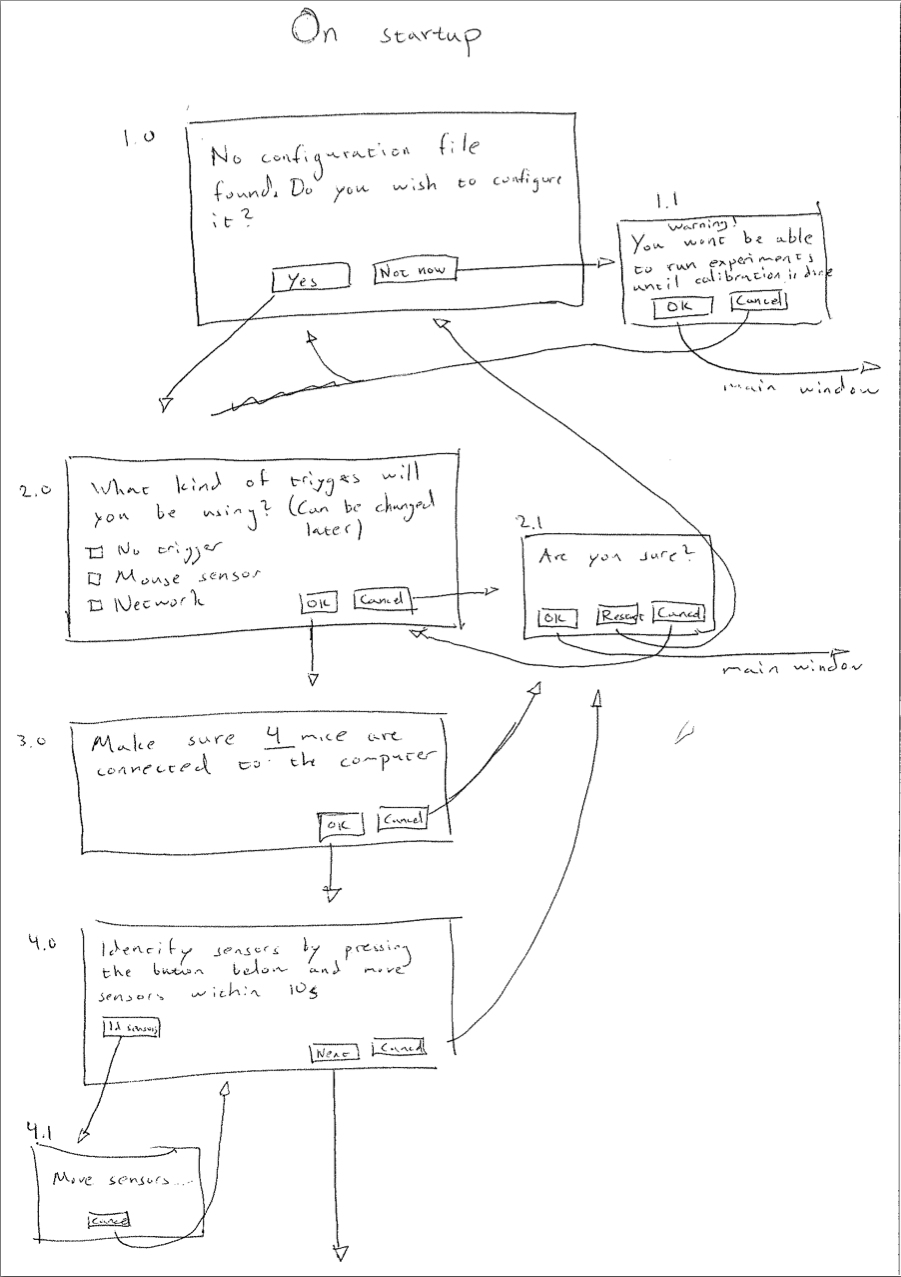 On startup
1.0
No configuration file
found. Do you wish to configure
it?
Yes
Not now
1.1
Warning!
You wont be able
to run experiments
until calibration is done
OK
Cancel
main window
2.0
What kind of trigges will
you be using? (Can be changed
later)
No trigger
Mouse sensor
Network
OK
Cancel
2.1
Are you sure?
OK
Restart
Cancel
main window
3.0
Make sure 4 mice are
connected to the computer
OK
Cancel
4.0
Identify sensors by pressing
the button below and move
sensors within 10s
Id sensors
Next
Cancel
4.1
Move sensors....
Cancel